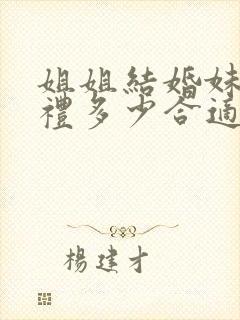 姐姐結婚妹
禮多少合適
楊建才